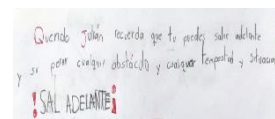 Querido Julián recuerda que tu puedes salir adelante
y su pe cualquier obstáculo y cualquier tempestad y situación
¡SAL ADELANTE!